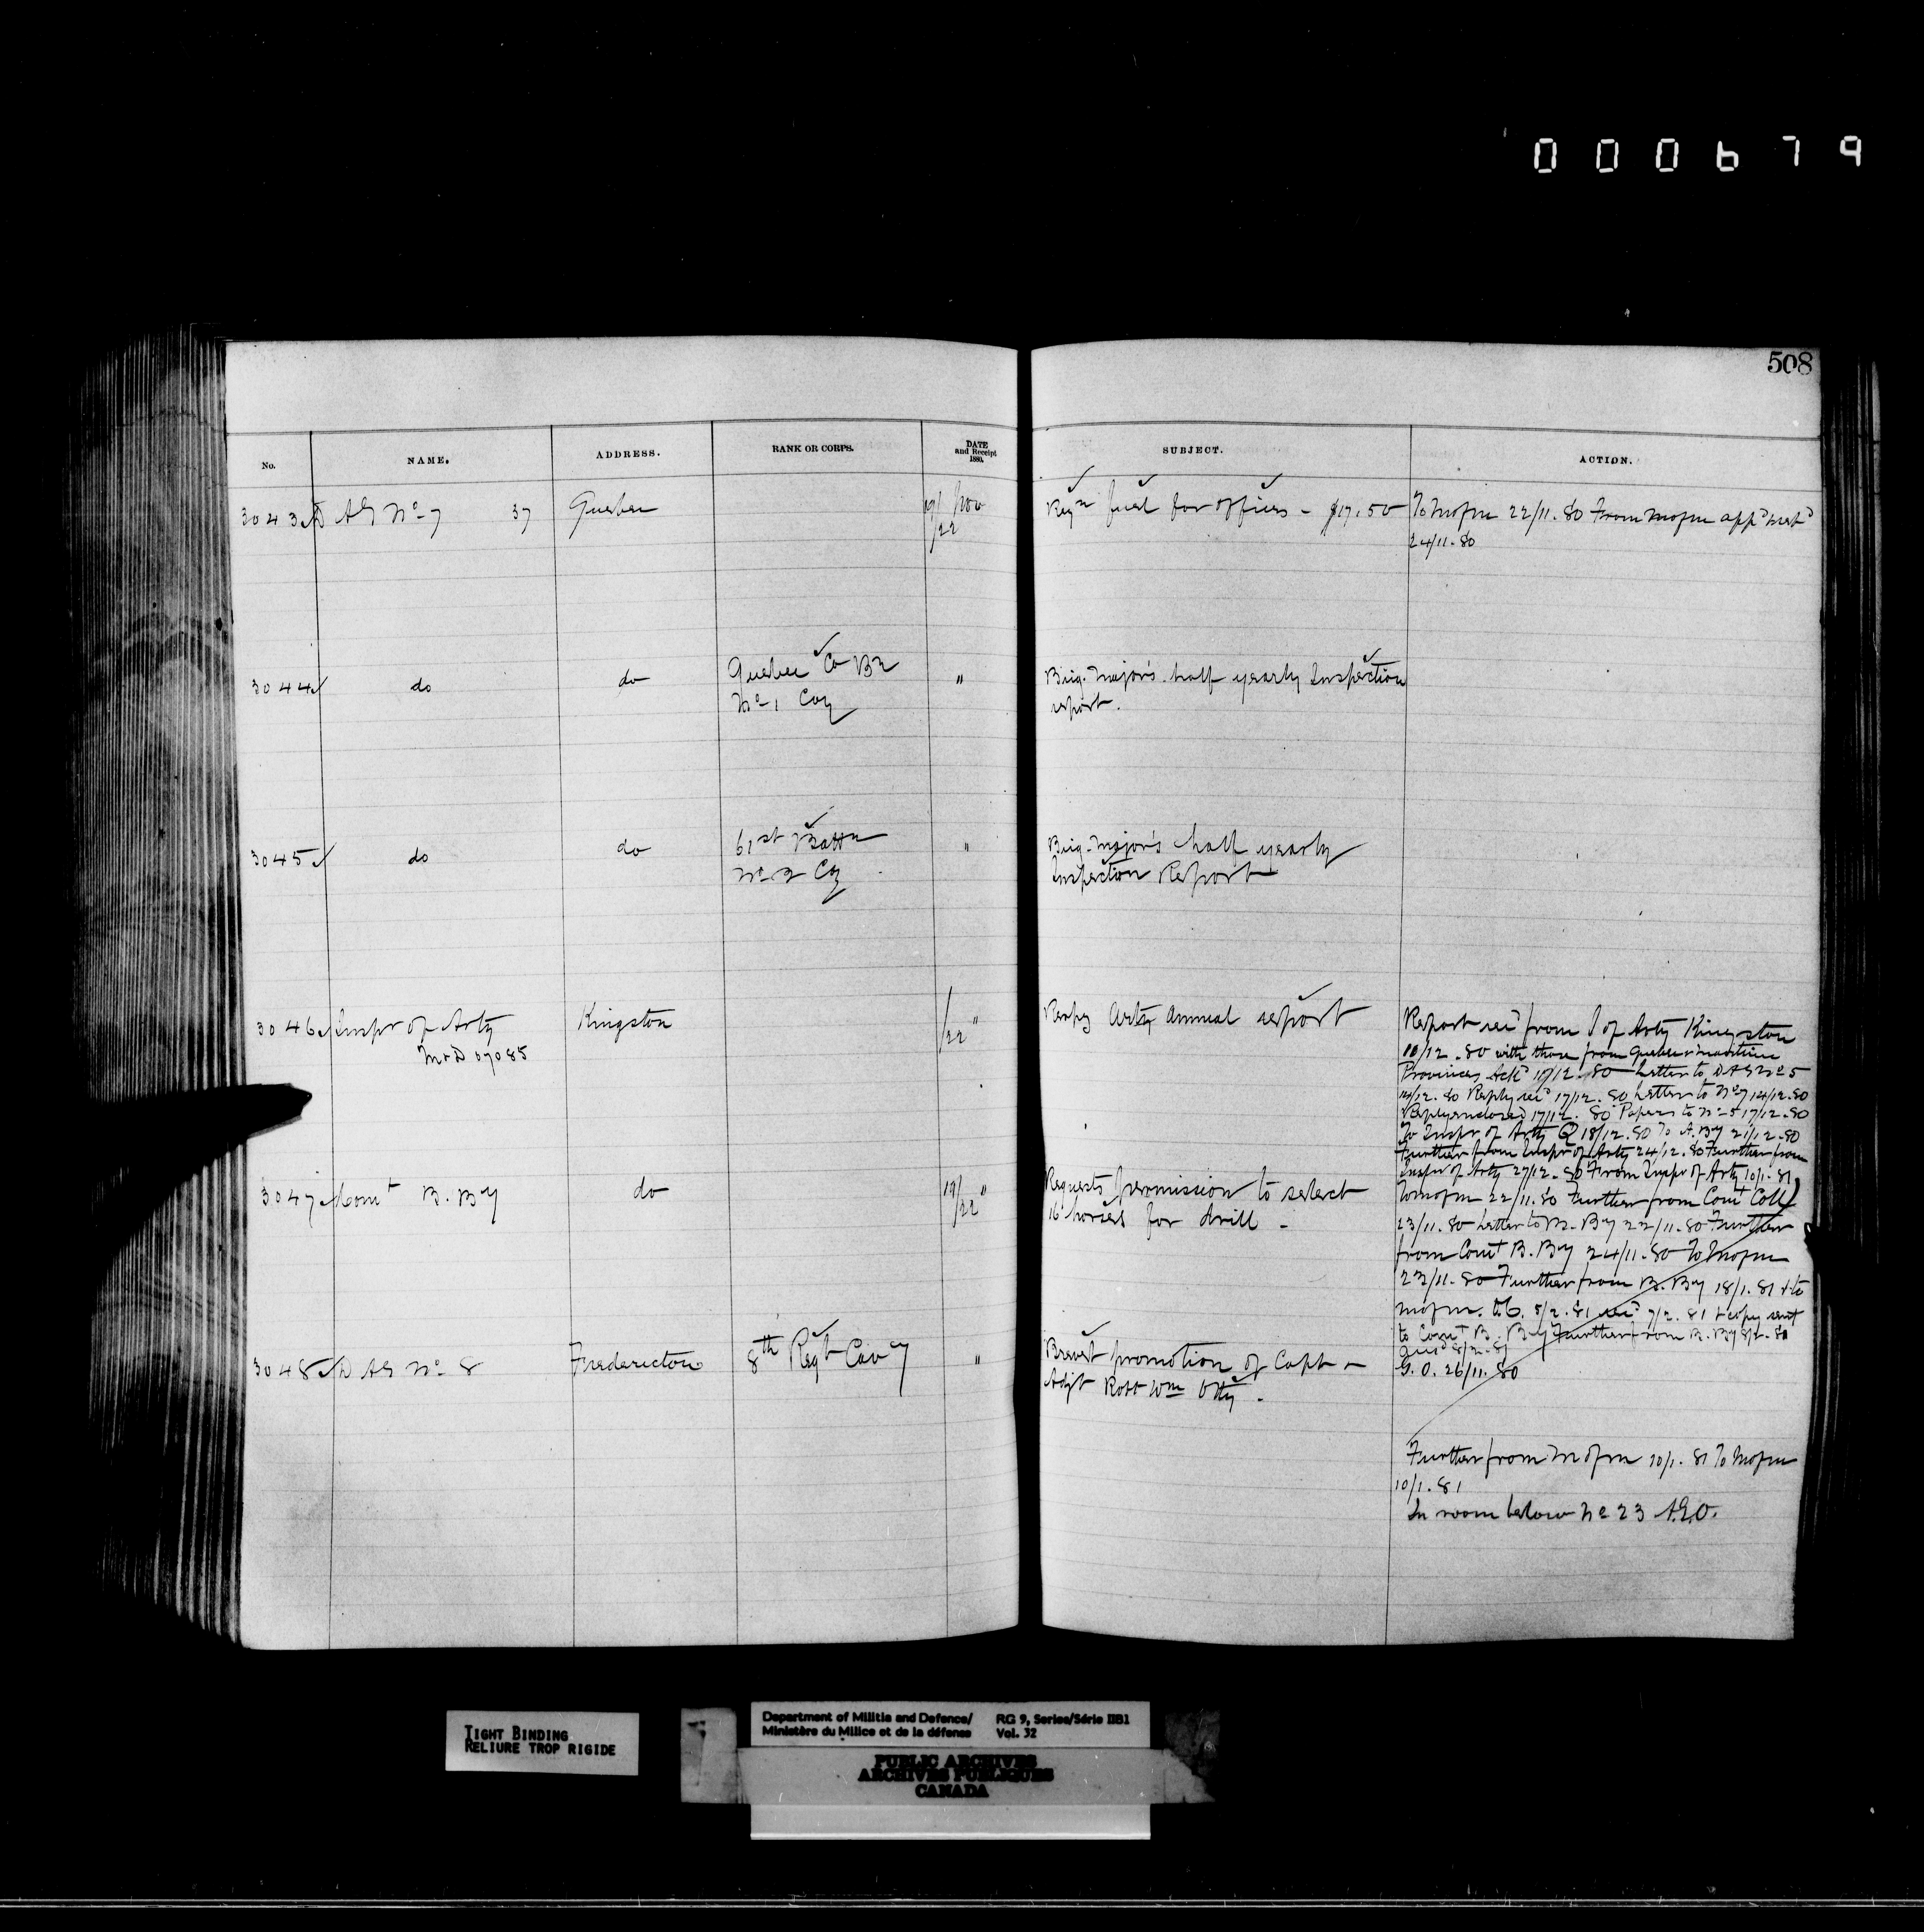 000679
508
No. NAME. ADDRESS. RANK OR CORPS. DATE and Receipt 1880. SUBJECT. ACTION.
3043 D A G No 7 37 Quebec 19/22 Nov Reqn fuel for offices - $17.50 To M of M 22/11.80 From M of M appd
24/11.80
3044 do do Quebec Co Bn " Brig. Major's half yearly Inspection
No 1 Coy report.
3045 do do 61st Battn " Brig. Major's half yearly
No 2 Coy Inspection Report
3046 Inspr of Arty Kingston /22 " Respg Arty Annual report Report recd from I of Arty Kingston
M & D 07085 10/12.80 with those from Quebec & Maritime
Provinces Ackd 10/12.80 Letter to D A G No 5
14/12.80 Reply recd 17/12.80 Letter to No 7 14/12.80
Reply enclosed 17/12.80 Papers to No 5 17/12.80
To Inspr of Arty Q 18/12.80 To A. By 21/12.80
Further from Inspr of Arty 24/12.80 Further from
Inspr of Arty 27/12.80 From Inspr of Arty 10/1.81
3047 Comt B. By do 19/22 " Requests permission to select To M of M 22/11.80 Further from Comt Coll
16 horses for drill - 23/11.80 Letter to B. By 22/11.80 Further
from Comt B. By 24/11.80 To M of M
23/11.80 Further from B. By 18/1.81 & to
M of M. 5/2.81 recd 7/2.81 & copy sent
to Comt B. By Further from B. By 8/2.81
8/2.81
3048 D A G No 8 Fredericton 8th Regt Cavy " Brevet promotion of Capt & G. O. 26/11.80
Adjt Robt Wm Otty.
Further from M of M 10/1.81 To M of M
10/1.81
In room below No 23 A.G.O.
TIGHT BINDING
RELIURE TROP RIGIDE
Department of Militia and Defence/ RG 9, Series/Série IIB1
Ministère du Milice et de la défense Vol. 32
PUBLIC ARCHIVES
ARCHIVES PUBLIQUES
CANADA